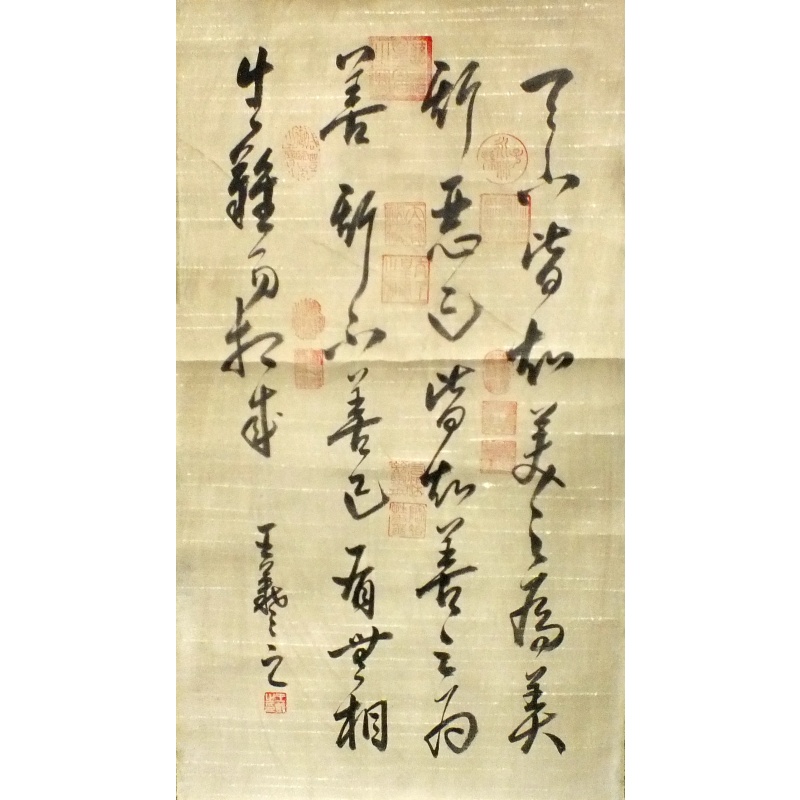 天下皆知美之為美
斯惡已皆知善之為
善斯不善已有無相
生難易相成
王羲之